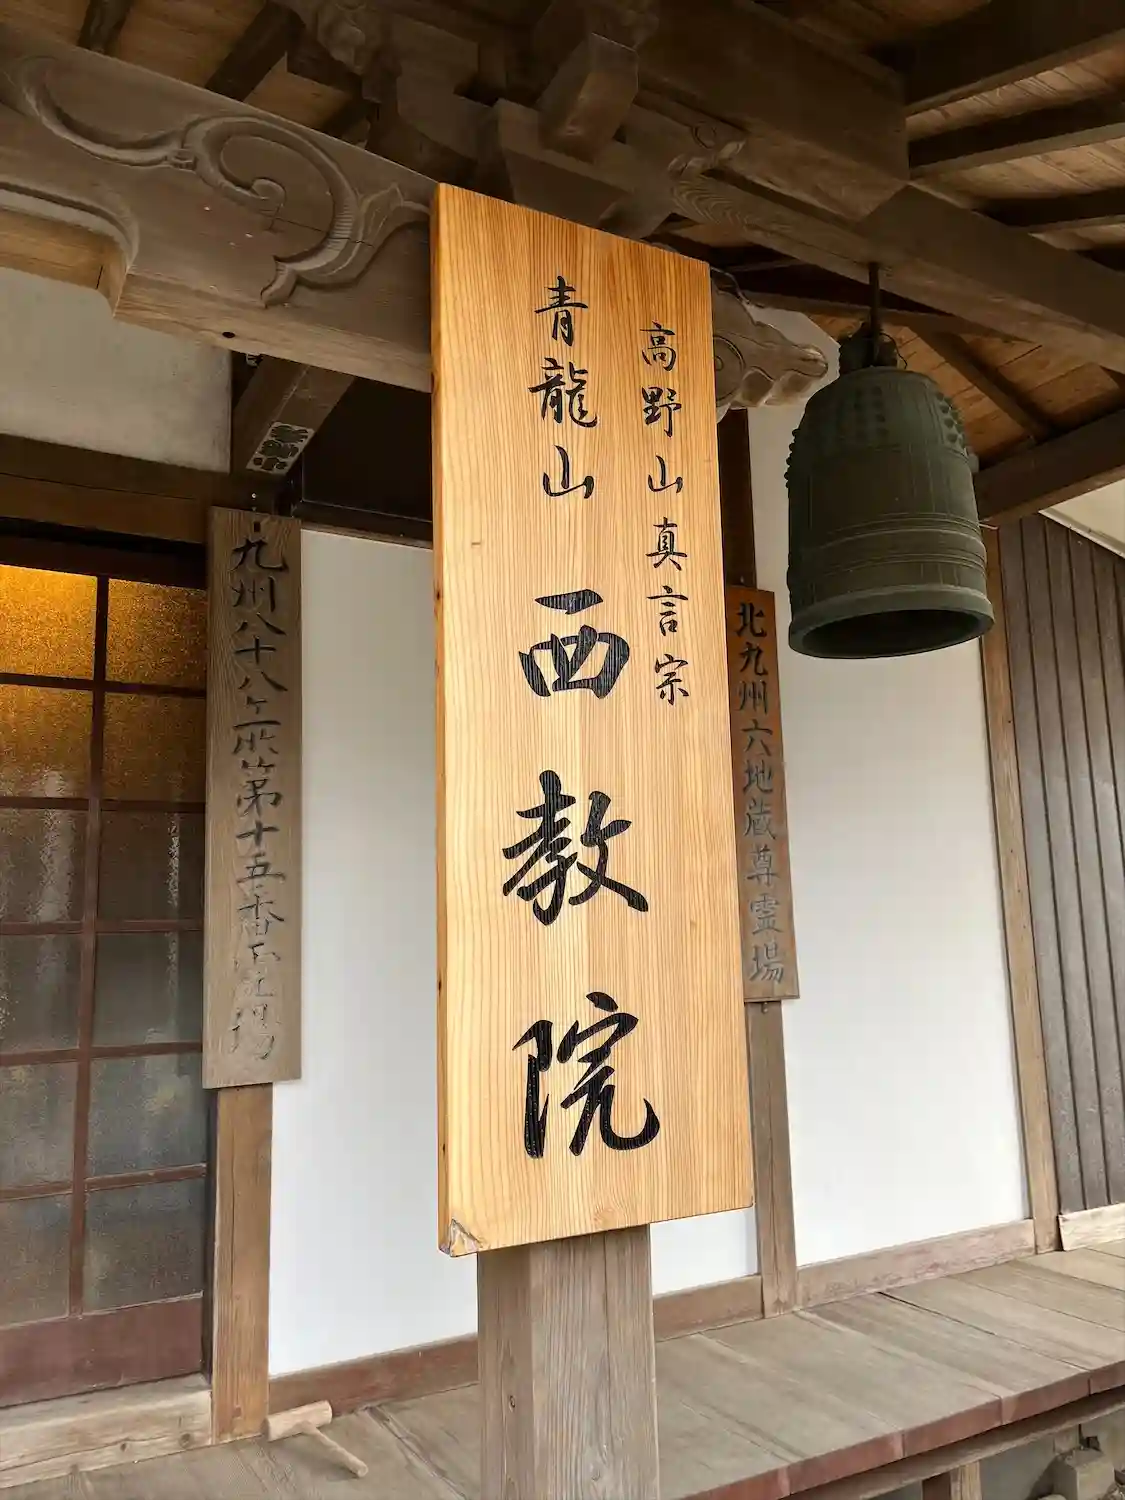 高野山真言宗
青龍山 西教院
北九州六地蔵尊霊場
九州八十八ヶ所第十五番霊場